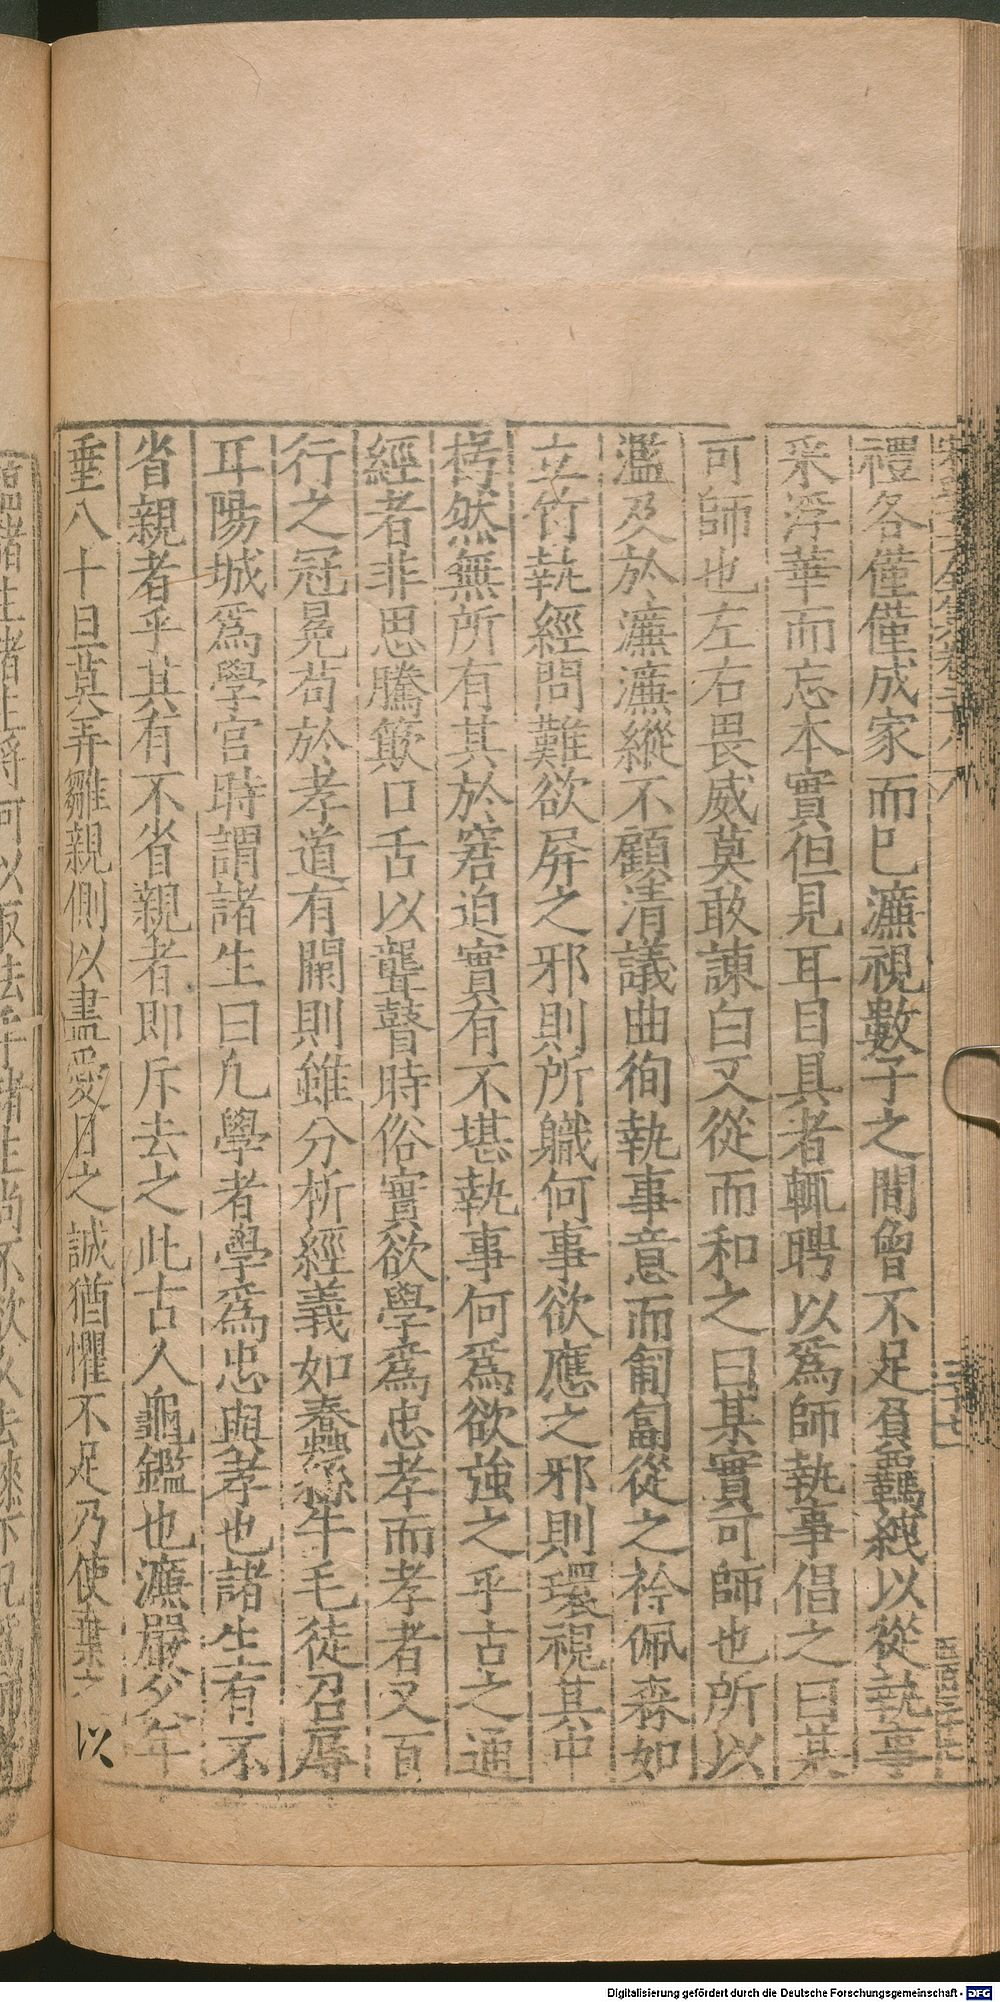 禮各僅僅成家而已濂視數子之間曾不足負羈紲以從執事
采浮華而忘本實但見耳目具者輒聘以爲師執事倡之曰某
可師也左右畏威莫敢諫白又從而和之曰某實可師也所以
濫及於濂濂縱不顧清議曲徇執事意而匍匐從之衿佩森如
立竹執經問難欲屏之邪則所職何事欲應之邪則環視其中
枵然無所有其於窘迫實有不堪執事何爲欲強之乎古之通
經者非思騰簸口舌以聾瞽時俗實欲學爲忠孝而孝者又百
行之冠冕苟於孝道有闕則雖分析經義如蠶絲牛毛徒召辱
耳陽城爲學官時謂諸生曰凡學者學爲忠與孝也諸生有不
省親者乎其有不省親者即斥去之此古人龜鑑也濂嚴父年
垂八十旦莫弄雛親側以盡愛日之誠猶懼不足乃使棄之以
Digitalisierung gefördert durch die Deutsche Forschungsgemeinschaft - DFG